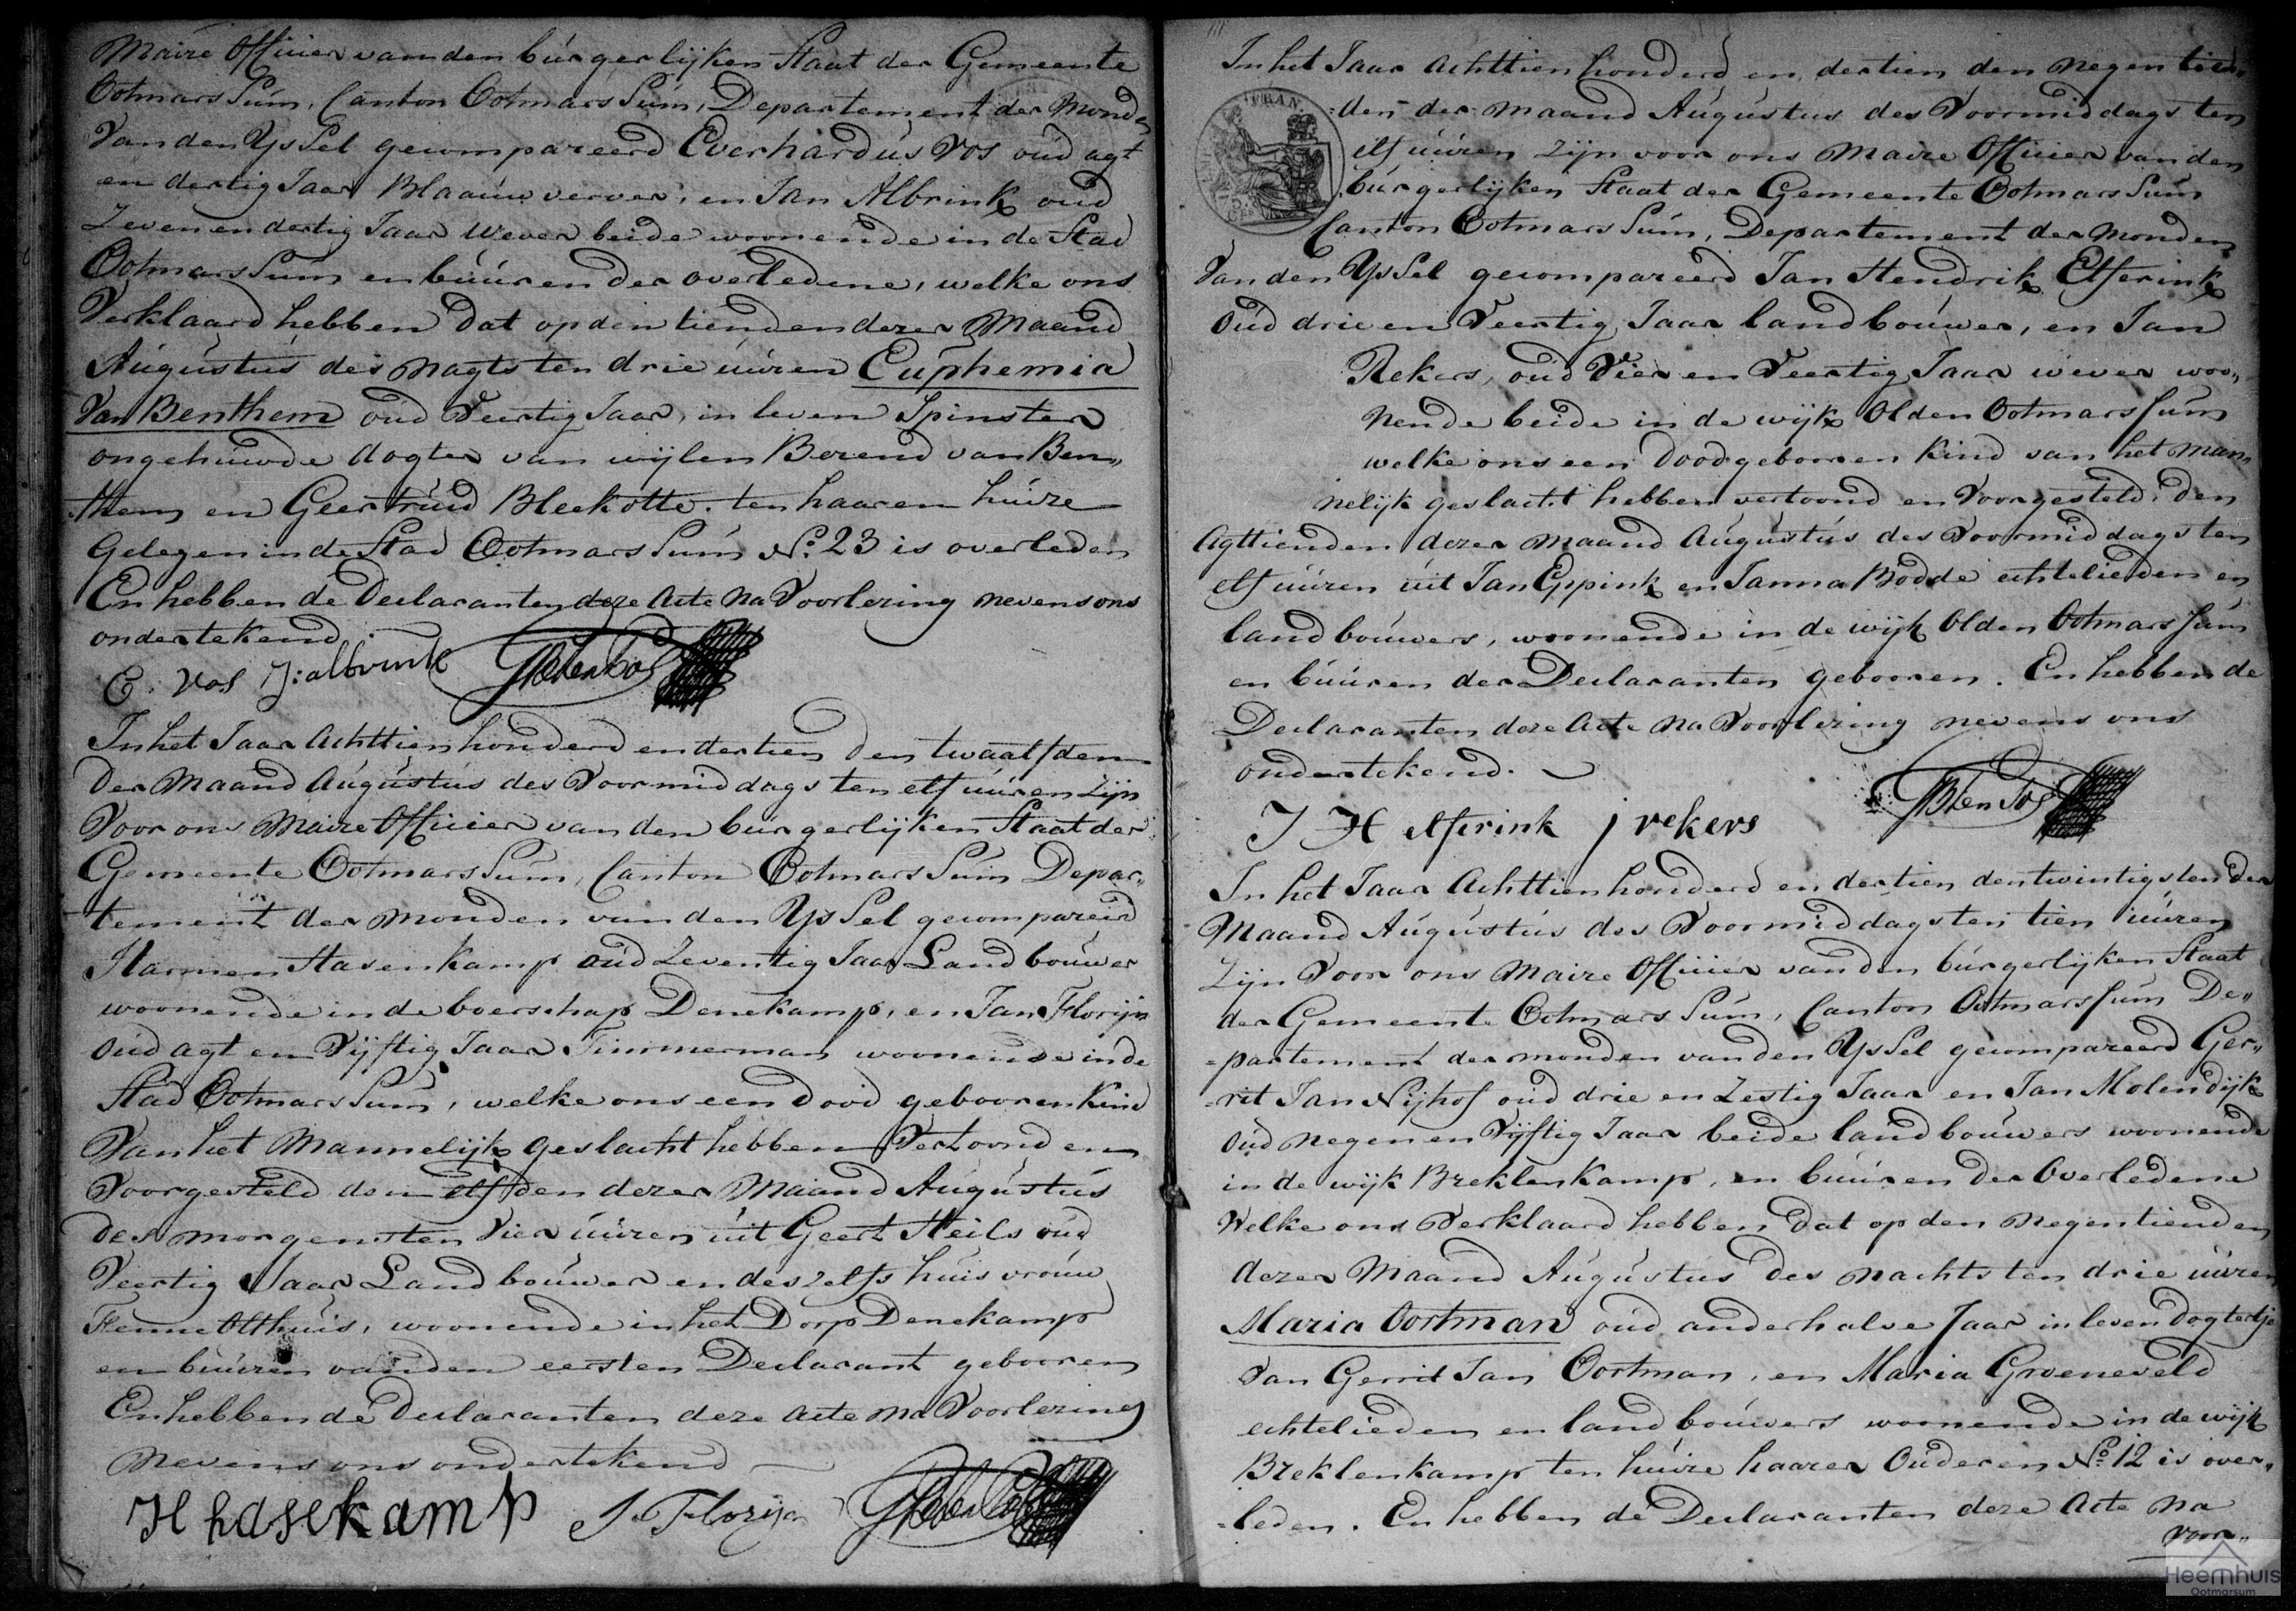 Maire Officier van den burgerlijken Staat der Gemeente
Ootmarssum, Canton Ootmarssum, Departement der Monden
van den Yssel gecompareerd Everhardus Vos oud agt
en dertig Jaar Blaauwverver, en Jan Albrink oud
Zeven en dertig Jaar Wever beide woonende in de Stad
Ootmarssum en buuren der overledene, welke ons
Verklaard hebben dat op den tienden dezer Maand
Augustus des Nagts ten drie uuren Euphemia
Van Benthem oud Veertig Jaar, in leven Spinster
ongehuwde dogter van wijlen Berend van Ben„
them en Geertruid Bleekotte ten haaren huize
Gelegen in de Stad Ootmarssum No. 23 is overleden
En hebben de Declaranten deze Acte na Voorlezing nevens ons
ondertekend.
E: Vos J: albrink
In het Jaar Achttien honderd en dertien den twaalfden
der Maand Augustus des Voormiddags ten elf uuren zijn
Voor ons Maire Officier van den burgerlijken Staat der
Gemeente Ootmarssum, Canton Ootmarssum Depar„
tement der Monden van den Yssel gecompareerd
Harmen Hasenkamp oud Zeventig Jaar Landbouwer
woonende in de boerschap Denekamp, en Jan Florijn
oud agt en Vijftig Jaar Timmerman woonende in de
Stad Ootmarssum, welke ons een dood gebooren Kind
Van het Mannelijk geslacht hebben Vertoond en
Voorgesteld den elfden dezer Maand Augustus
des morgens ten Vier uuren uit Geert Heils oud
Veertig Jaar Landbouwer en deszelfs huisvrouw
Fenne Olthuis, woonende in het Dorp Denekamp
en buuren van den eersten Declarant gebooren
En hebben de Declaranten deze Acte na Voorlezing
nevens ons ondertekend
H hasekamp J. Florijn
In het Jaar Achttien honderd en dertien den negentien„
=den der maand Augustus des Voormiddags ten
elf uuren zijn voor ons Maire Officier van den
burgerlijken Staat der Gemeente Ootmarssum
Canton Ootmarssum, Departement der Monden
van den Yssel gecompareerd Jan Hendrik Elferink
oud drie en Veertig Jaar landbouwer, en Jan
Rekers, oud Vier en Veertig Jaar wever woo„
nende beide in de wijk Olden Ootmarssum
welke ons een Doodgebooren Kind van het man„
nelijk geslacht hebben vertoond en Voorgesteld, den
Agttienden dezer maand Augustus des Voormiddags ten
elf uuren uit Jan Eppink en Janna Bodde echtelieden en
landbouwers, woonende in de wijk Olden Ootmarssum
en buuren der Declaranten gebooren. En hebben de
Declaranten deze Acte na Voorlezing nevens ons
ondertekend.
J H elferink j rekers
In het Jaar Achttien honderd en dertien den twintigsten der
Maand Augustus des Voormiddags ten tien uuren
Zijn Voor ons Maire Officier van den burgerlijken Staat
der Gemeente Ootmarssum, Canton Ootmarssum De„
=partement der monden van den Yssel gecompareerd Ger„
=rit Jan Nijhof oud drie en Zestig Jaar en Jan Molendijk
oud negen en Vijftig Jaar beide landbouwers woonende
in de wijk Breklenkamp, en buuren der Overledene
Welke ons Verklaard hebben dat op den Negentienden
dezer Maand Augustus des nachts ten drie uuren
Maria Oortman oud anderhalve Jaar in leven Dogtertje
Van Gerrit Jan Oortman, en Maria Groeneveld
echtelieden en landbouwers woonende in de wijk
Breklenkamp ten huize haarer Ouderen No. 12 is over„
=leden. En hebben de Declaranten deze Acte na
voor„
Heemhuis
Ootmarsum